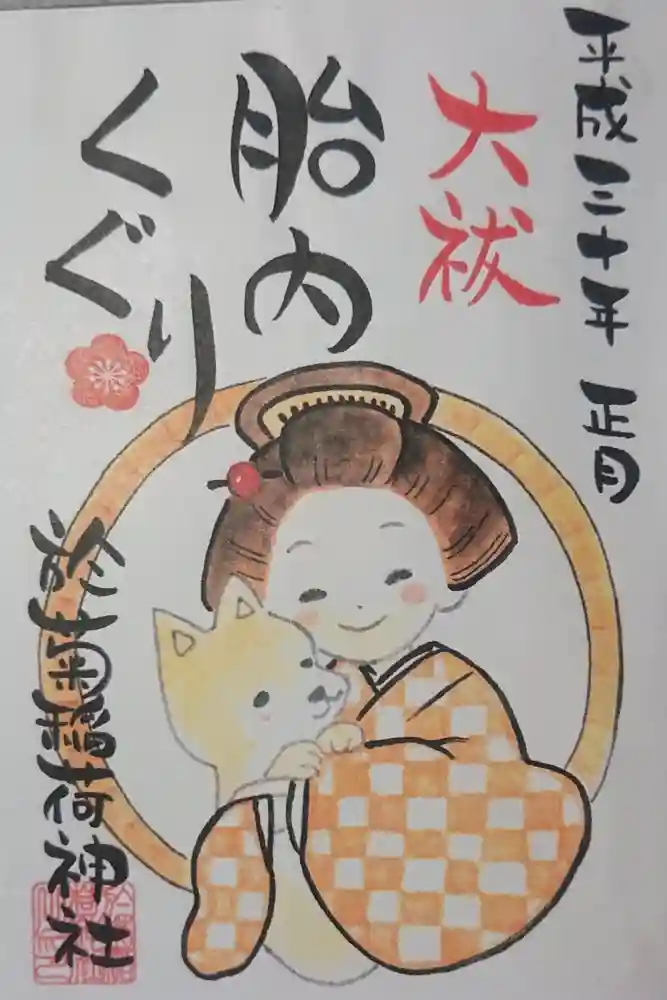 平成三十年 正月
大祓
胎内
くぐり
於菊稲荷神社